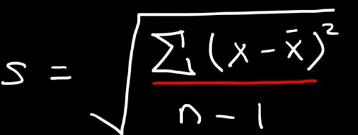 s = √(∑(x - x̄)² / (n - 1))